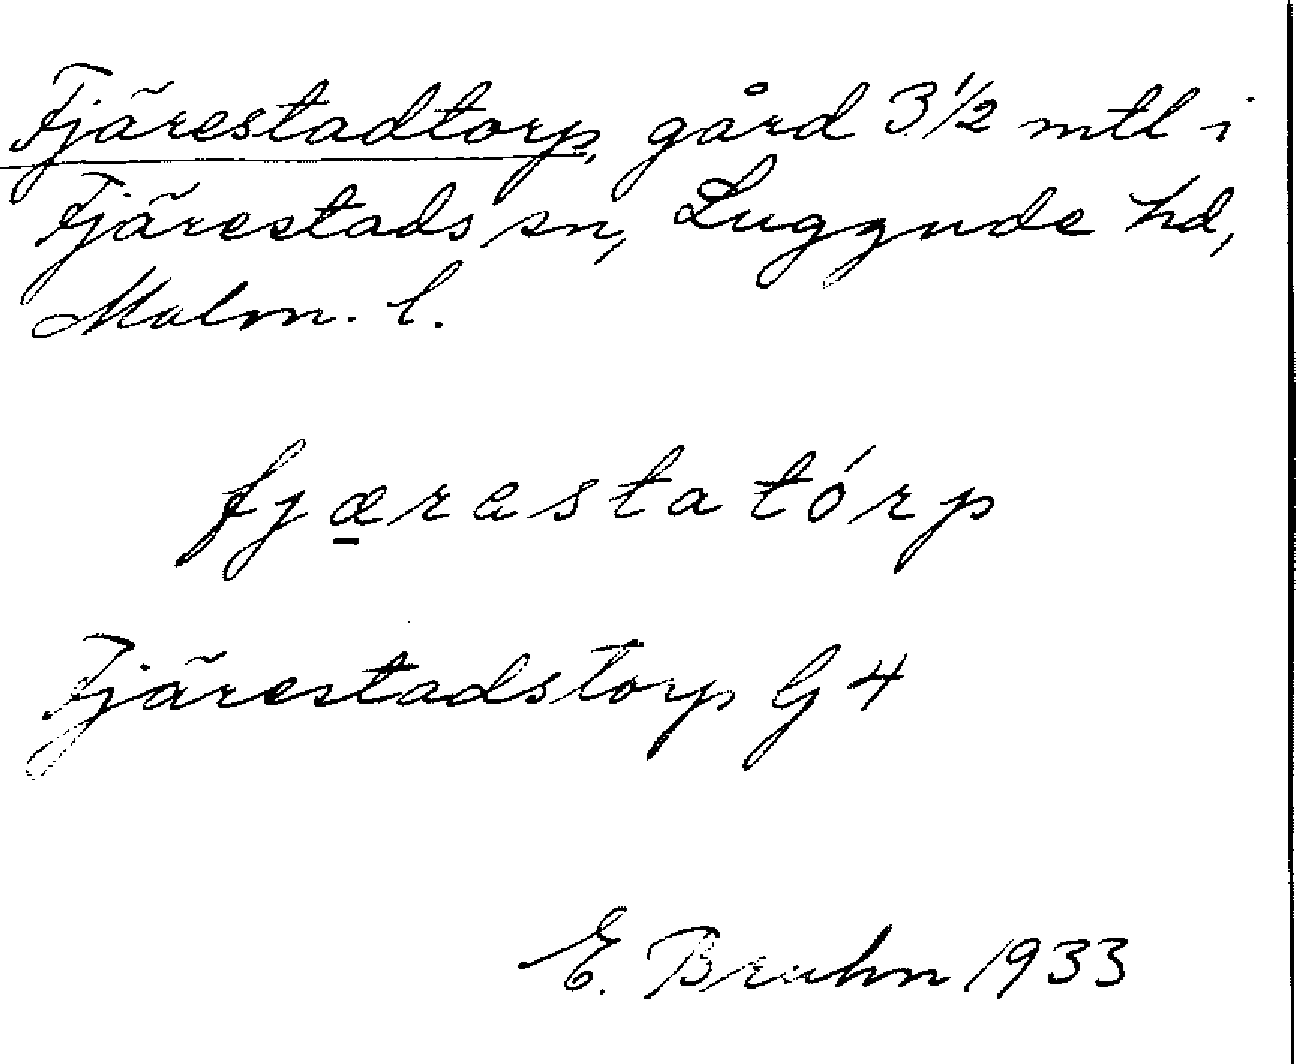 Fjärestadtorp, gård 3 1/2 mtl i
Fjärestads sn, Luggude hd,
Malm. l.
fjæ̱rastatórp
Fjärestadstorp G 4
E. Bruhn 1933